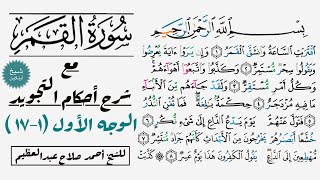 سُورَةُ القَمَر
مع
شرح أحكام التجويد
الوجه الأول (١-١٧)
للشيخ أحمد صلاح عبدالعظيم
بِسْمِ اللَّهِ الرَّحْمَٰنِ الرَّحِيمِ
اقْتَرَبَتِ السَّاعَةُ وَانشَقَّ الْقَمَرُ ١ وَإِن يَرَوْا آيَةً يُعْرِضُوا
وَيَقُولُوا سِحْرٌ مُّسْتَمِرٌّ ٢ وَكَذَّبُوا وَاتَّبَعُوا أَهْوَاءَهُمْ
وَكُلُّ أَمْرٍ مُّسْتَقِرٌّ ٣ وَلَقَدْ جَاءَهُم مِّنَ الْأَنبَاءِ
مَا فِيهِ مُزْدَجَرٌ ٤ حِكْمَةٌ بَالِغَةٌ فَمَا تُغْنِ النُّذُرُ ٥
فَتَوَلَّ عَنْهُمْ يَوْمَ يَدْعُ الدَّاعِ إِلَىٰ شَيْءٍ نُّكُرٍ ٦
خُشَّعًا أَبْصَارُهُمْ يَخْرُجُونَ مِنَ الْأَجْدَاثِ كَأَنَّهُمْ جَرَادٌ مُّنتَشِرٌ ٧
مُّهْطِعِينَ إِلَى الدَّاعِ يَقُولُ الْكَافِرُونَ هَٰذَا يَوْمٌ عَسِرٌ ٨ كَذَّبَتْ